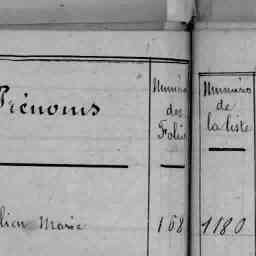 Prénoms
Numéro
des
Folio
Numéro
de
la liste
Marie 168 1180